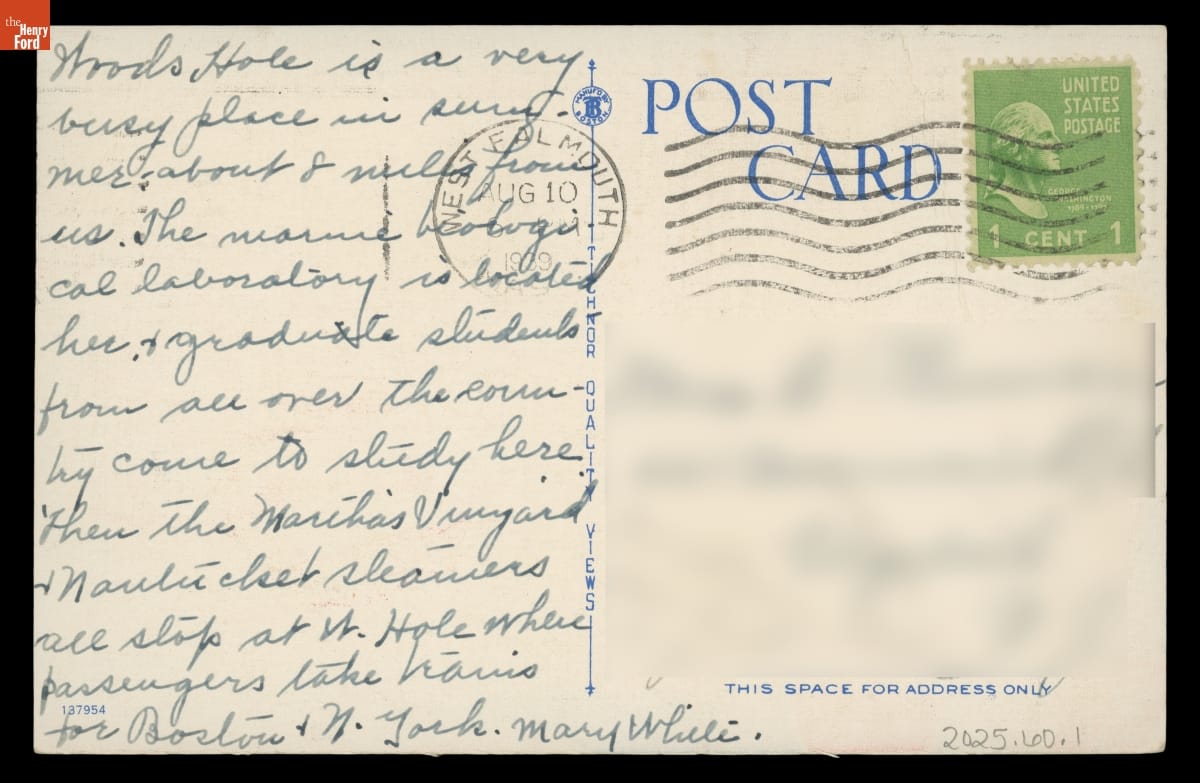 the
Henry
Ford
Woods Hole is a very
busy place in sum-
mer - about 8 miles from
us. The marine biologi
cal laboratory is located
her, & graduate students
from all over the coun-
try come to study here.
Then the Martha's Vinyard
& Nantucket steamers
all stop at W. Hole where
passengers take trains
for Boston & N. York. Mary White.
137954
MANUF. BY
TB
BOSTON
TICHNOR QUALITY VIEWS
WEST FALMOUTH
AUG 10
1939
POST
CARD
UNITED
STATES
POSTAGE
GEORGE
WASHINGTON
1789-1797
1 CENT 1
THIS SPACE FOR ADDRESS ONLY
2025.60.1